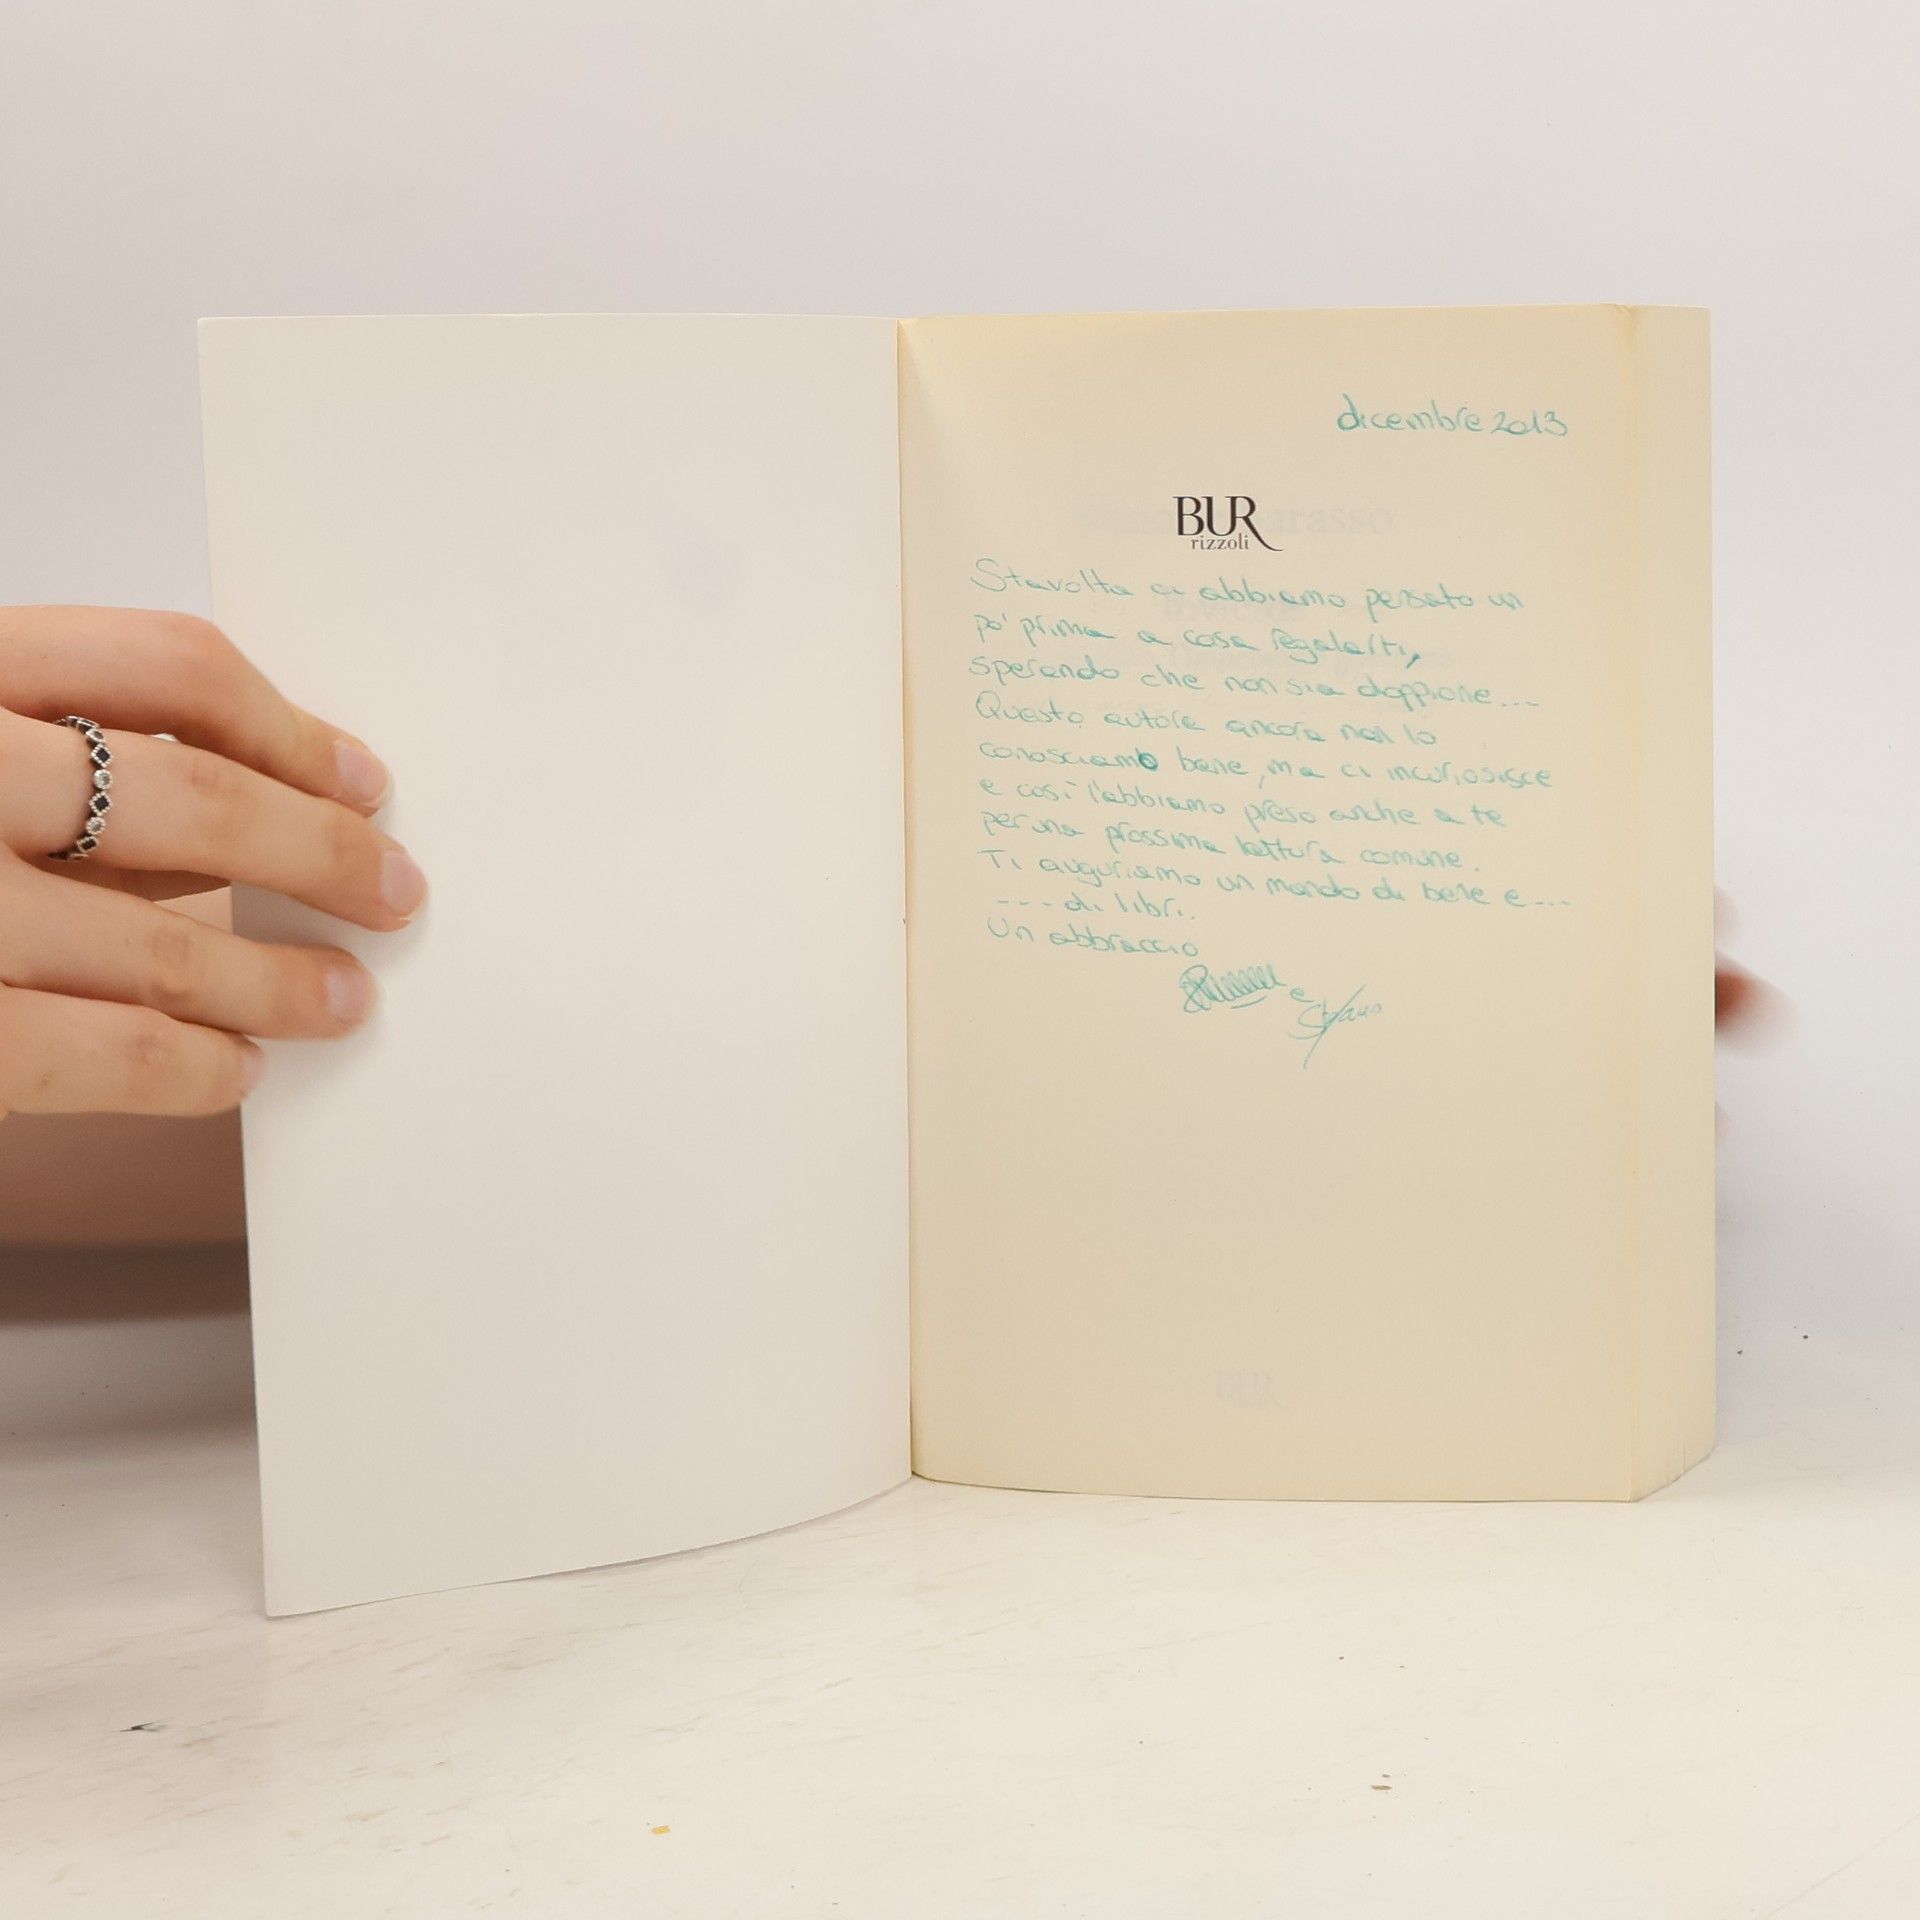 dicembre 2013
BUR
rizzoli
Stavolta ci abbiamo pensato un
po' prima a cosa regalarti,
sperando che non sia doppione...
Questo autore ancora non lo
conosciamo bene, ma ci incuriosisce
e così l'abbiamo preso anche a te
per una prossima lettura comune.
Ti auguriamo un mondo di bene e...
... di libri.
Un abbraccio
e
Stefano
BUR